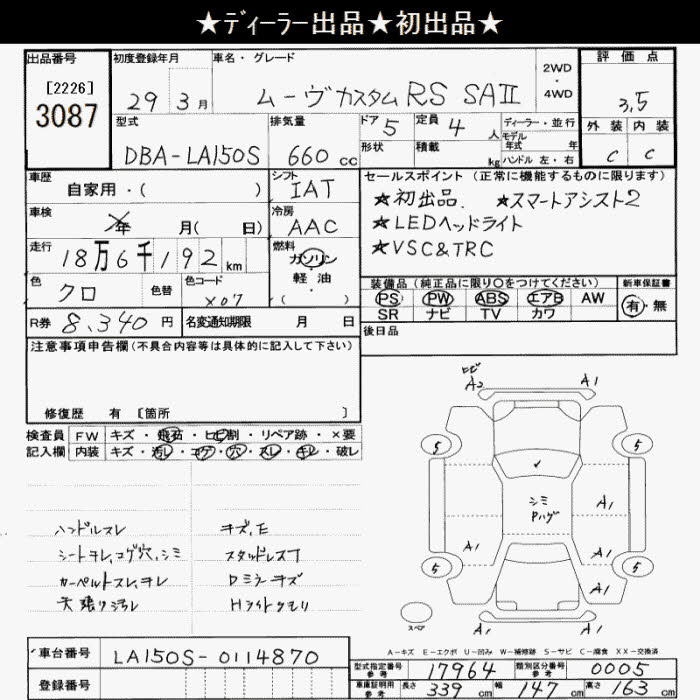 ★ディーラー出品★初出品★
出品番号
[2226]
3087
初度登録年月
29 3月
車名・グレード
ムーヴカスタム RS SAⅡ
2WD
・
4WD
評価点
3.5
外装 内装
C C
型式
DBA-LA150S
排気量
660cc
ドア 5
形状
定員 4人
積載 kg
ディーラー・並行
モデル年式 年
ハンドル 左・右
車歴
自家用・( )
シフト
IAT
車検
年 月( 日)
冷房
AAC
走行
18万6千192km
燃料
ガソリン
軽油
・( )
色
クロ
色替
色コード
X07
R券 8,340円
名変通知期限 月 日
セールスポイント(正常に機能するものに限ります)
★初出品. ★スマートアシスト2
★LEDヘッドライト
★VSC&TRC
装備品(純正品に限り○をつけてください)
PS PW ABS エアB AW
SR ナビ TV カワ
新車保証書
有・無
後日品
注意事項申告欄(不具合内容等は具体的に記入して下さい)
修復歴 有 [箇所 ]
検査員記入欄
FW キズ・飛石・ヒビ割・リペア跡・×要
内装 キズ・汚レ・コゲ・穴・スレ・キレ・破レ
ハンドルスレ
シートヨレ,コゲ穴,シミ
カーペットスレ,ヨレ
天張り汚レ
キズ,E
スタッドレスT
Dミラーキズ
Hライトクモリ
A2 A1
5 5
シミ
Pハゲ
A1
A1 A1
5 5
A1
A1 A1
スペア
A-キズ E-エクボ U-凹み W-補修跡 S-サビ C-腐食 XX-交換済
車台番号 LA150S-0114870
登録番号
型式指定番号参考 17964 類別区分番号参考 0005
車庫証明用参考 長さ 339cm 幅 147cm 高さ 163cm